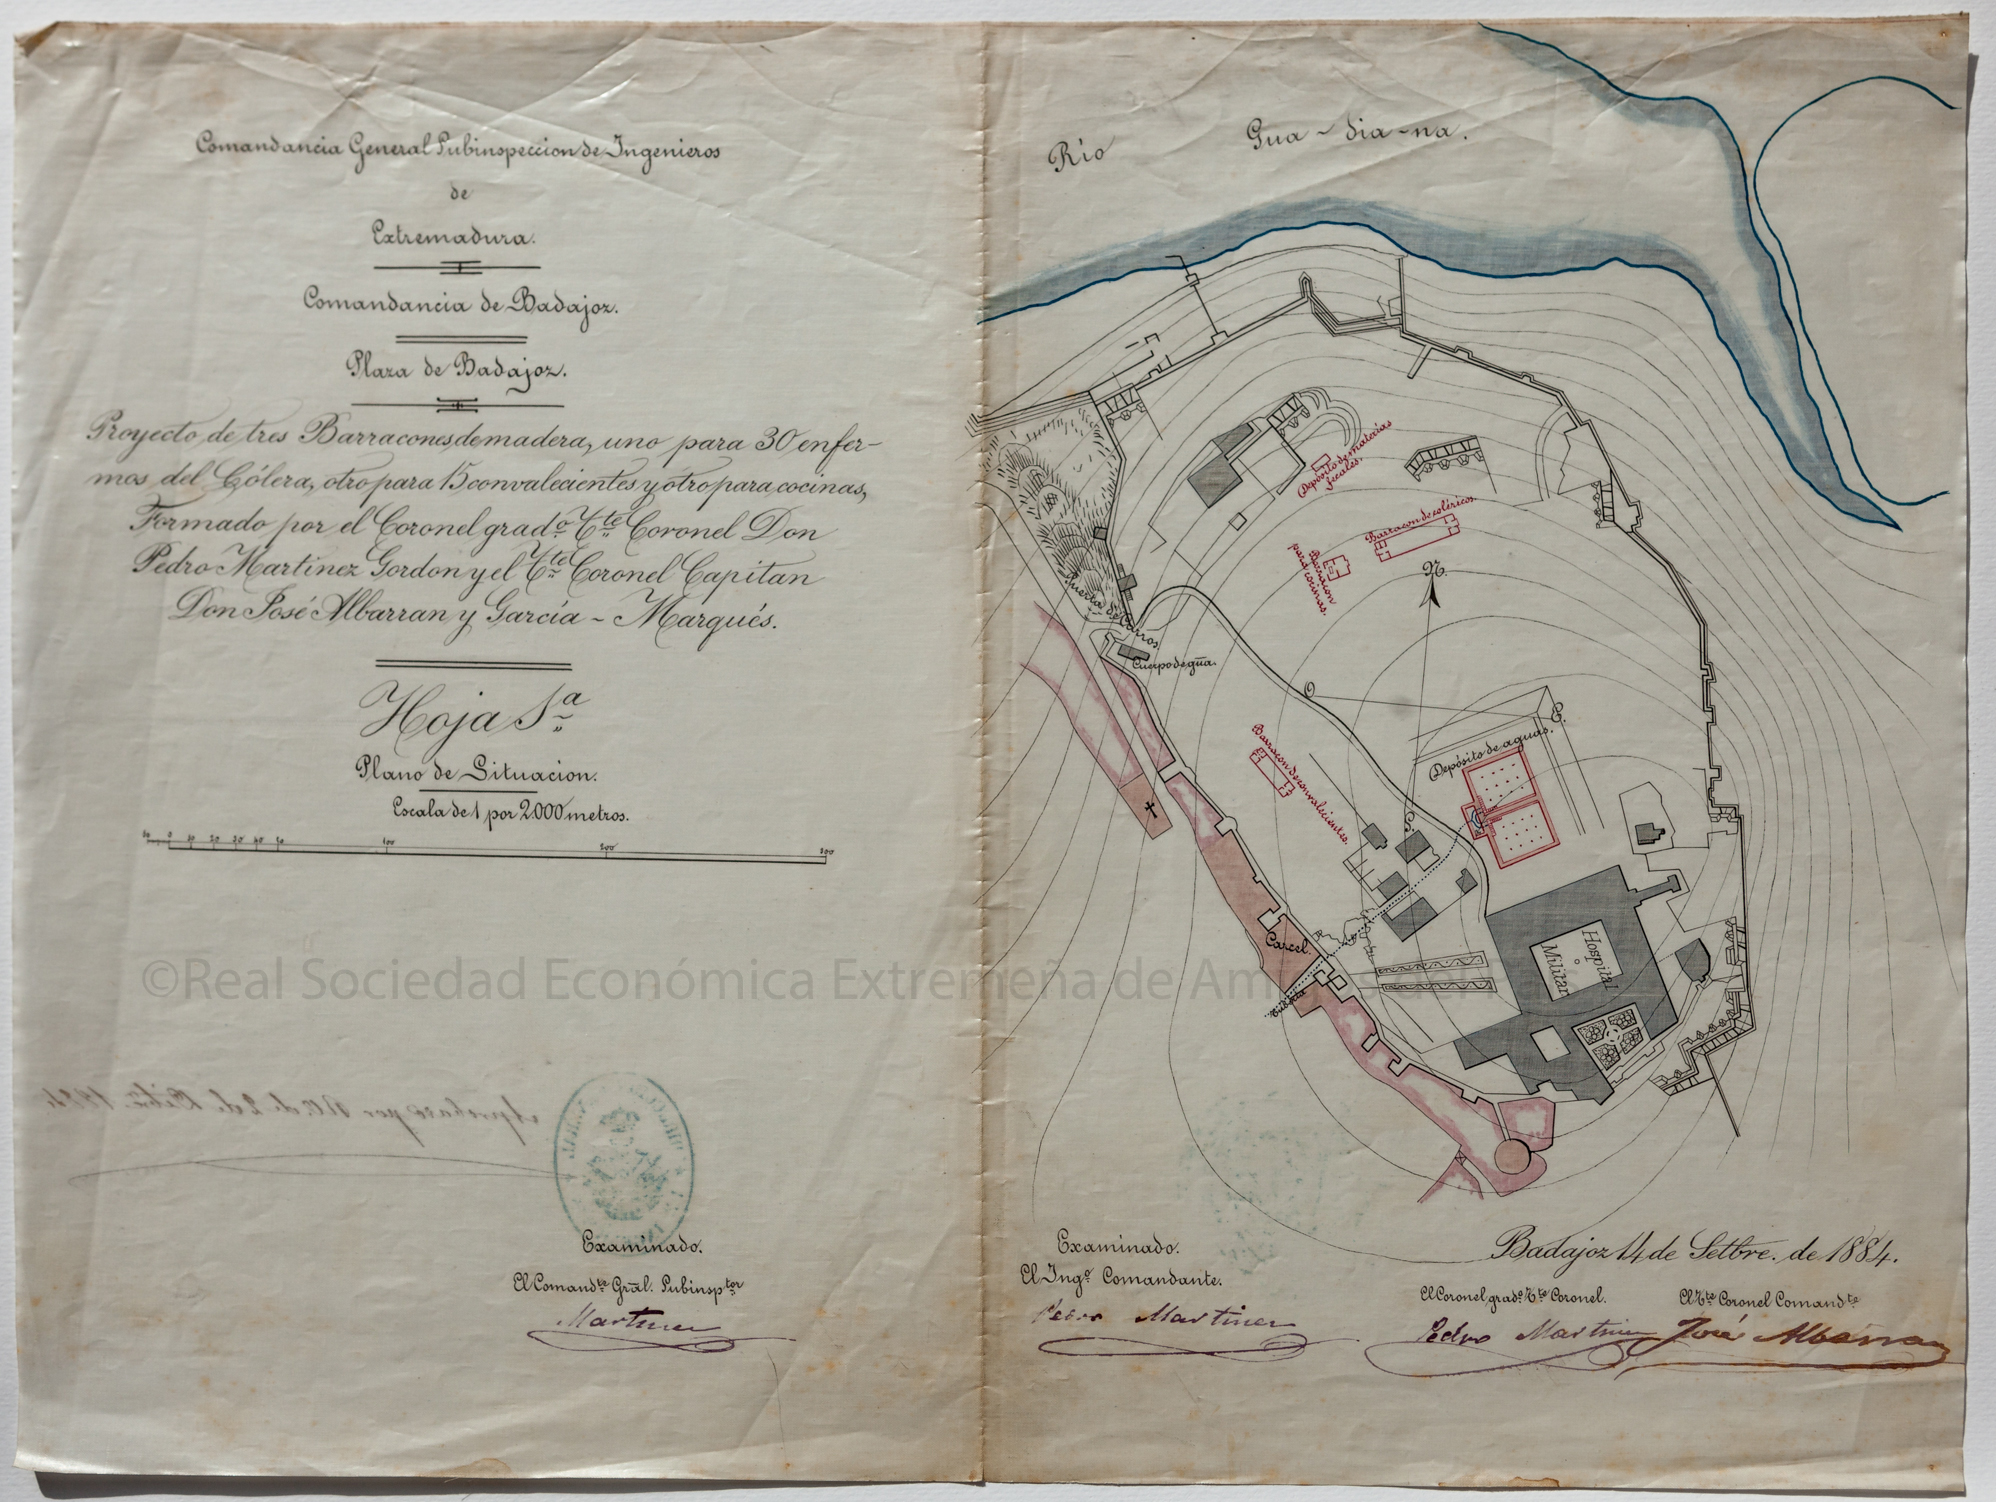 Comandancia General Subinspeccion de Ingenieros
de
Extremadura.
Comandancia de Badajoz.
Plaza de Badajoz.
Proyecto de tres Barracones de madera, uno para 30 enfer-
mos del Cólera, otro para 15 convalecientes y otro para cocinas,
Formado por el Coronel gradº Tte Coronel Don
Pedro Martinez Gordon y el Tte Coronel Capitan
Don José Albarran y García - Margués.
Hoja 1ª
Plano de Situacion.
Escala de 1 por 2000 metros.
10 0 10 20 30 40 50 100 200 300
Aprobado por R.O. de 2 de 1884
Examinado.
El Comandte Gral. Subinsptor
Martinez
Río Gua-dia-na.
Depósito de materias
fecales.
Barracon de coléricos
Barracon
para cocinas.
N.
Puerta de Carros.
Cuerpo de gūa.
O.
E.
S.
Barracon de convalecientes.
Depósito de aguas.
Carcel.
Tubería
Hospital
Militar
©Real Sociedad Económica Extremeña de Am
Badajoz 14 de Setbre. de 1884.
Examinado.
El Ingº Comandante.
Pedro Martinez
El Coronel gradº Tte Coronel.
Pedro Martinez
El Tte Coronel Comandte
José Albarran